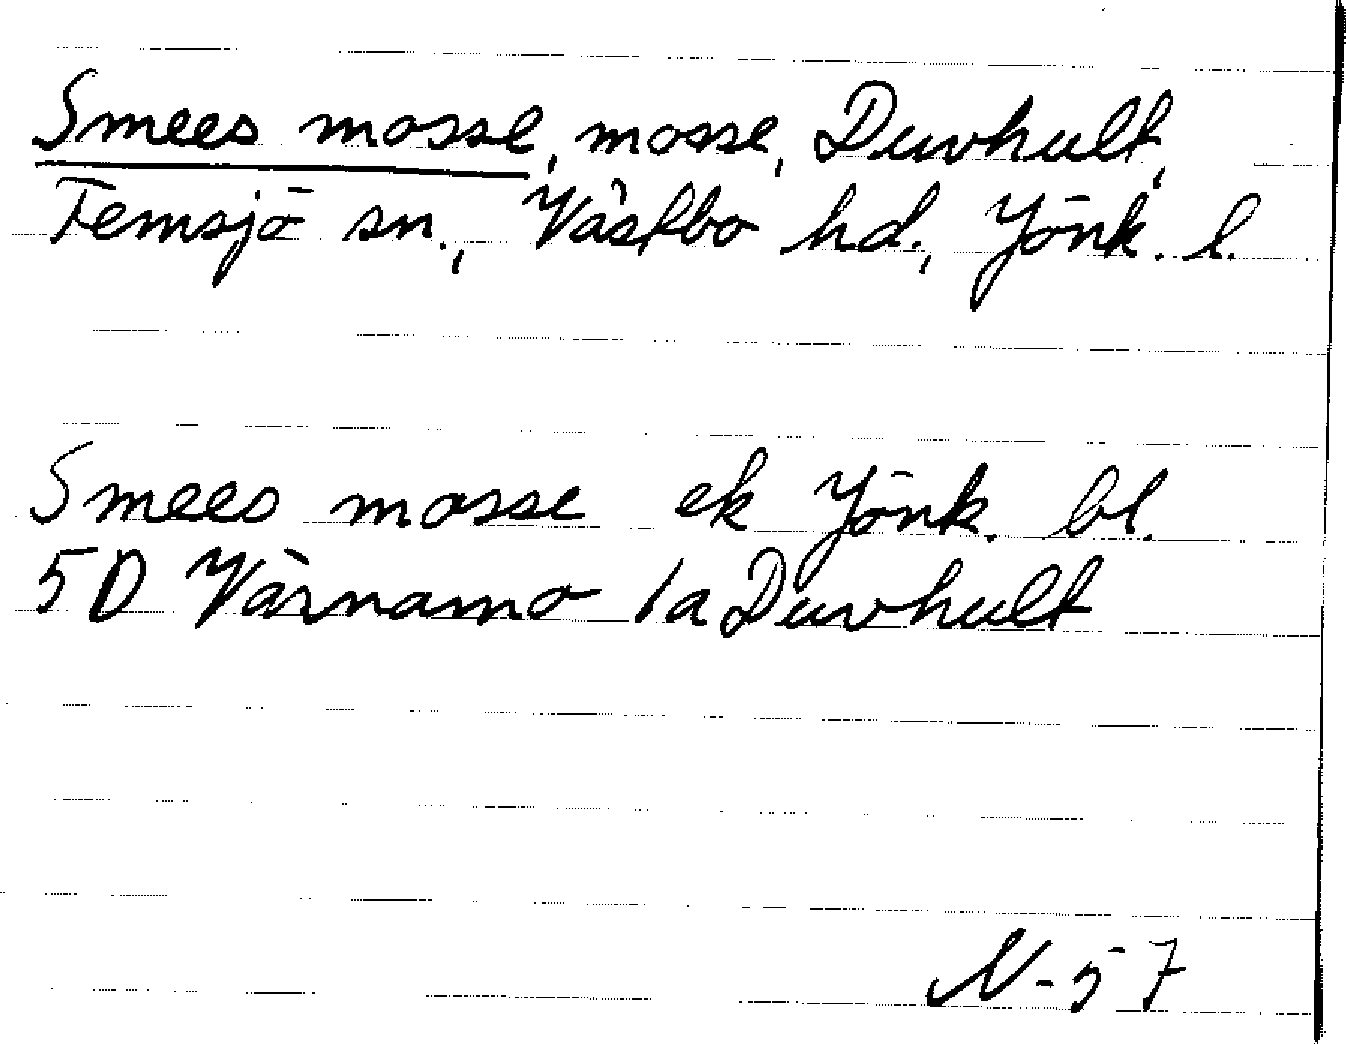 Smees mosse, mosse, Duvhult,
Femsjö sn., Västbo hd., Jönk. l.
Smees mosse ek Jönk. bl.
5D Värnamo 1a Duvhult
N-57